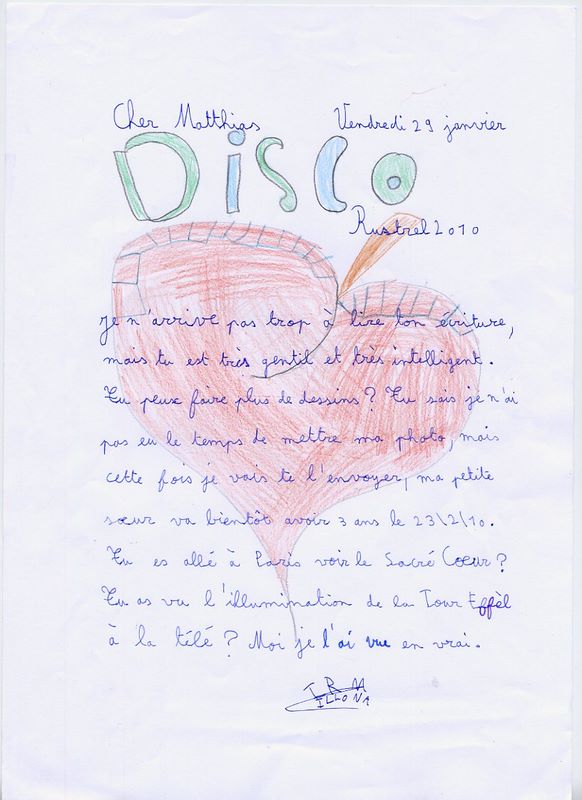 Cher Matthias Vendredi 29 janvier
DiSCO
Rustrel 2010
je n'arrive pas trop à lire ton écriture,
mais tu est très gentil et très intelligent.
Tu peux faire plus de dessins? Tu sais je n'ai
pas eu le temps de mettre ma photo, mais
cette fois je vais te l'envoyer, ma petite
sœur va bientôt avoir 3 ans le 23\2\10.
Tu es allé à Paris voir le Sacré Cœur?
Tu as vu l'illumination de la Tour Effèl
à la télé? Moi je l'ai vue en vrai.
IRMA
ILLONA